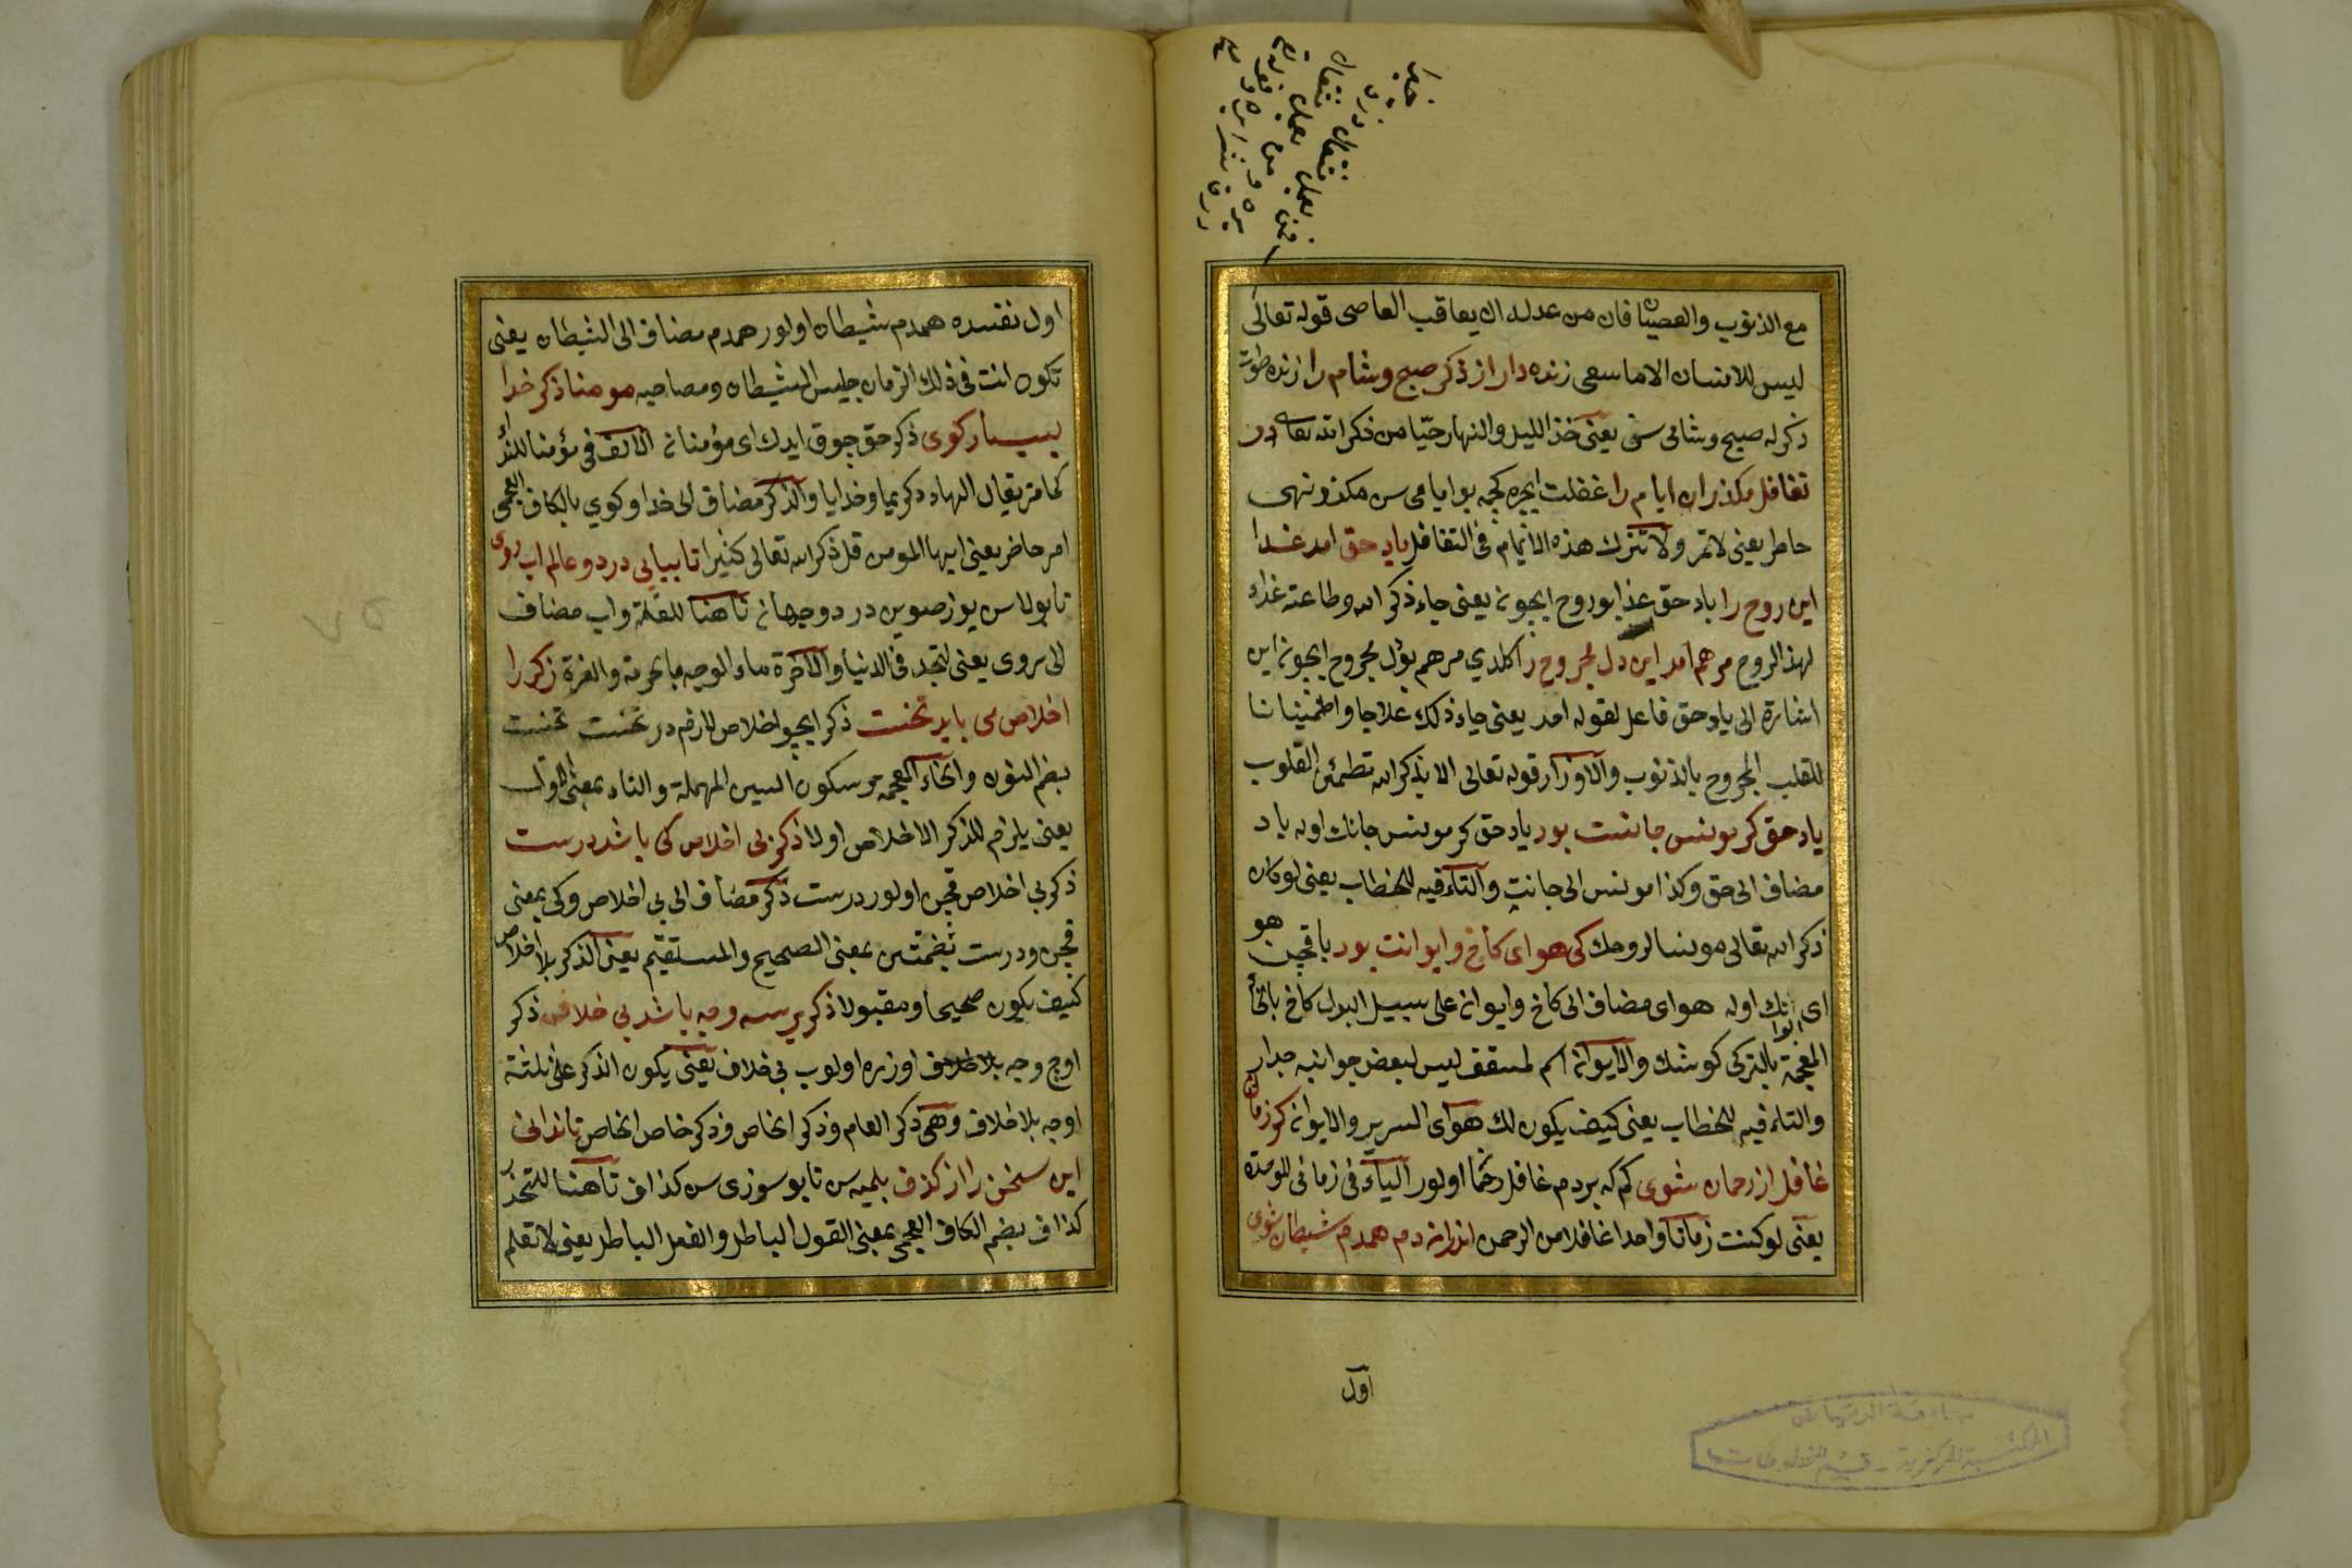 مع الذنوب والعصيان فان من عدله ان يعاقب العاصى قوله تعالى
ليس للانسان الا ما سعى زنده دار از ذكر صبح وشام را زنده طوت
ذكرله صبح وشامى سن يعنى خذ الليل والنهار حيّا من ذكر الله تعالى در
تغافل مكذران ايام را غفلت ايچره كچمه بو ايامى سن مكذر نهى
حاطر يعنى لا تمر ولا تترك هذه الايام فى التغافل ياد حق امد غدا
اين روح را ياد حق غذا بو روح ايچون يعنى جاء ذكر الله وطاعته غذاء
لهذا الروح مرهم امد اين دل مجروح را كلدي مرهم بو دل مجروح ايچون اين
اشارة الى ياد حق فاعل لقوله امد يعنى جاء ذلك علاجا واطمئينانا
للقلب المجروح بالذنوب والاوزار قوله تعالى الا بذكر الله تطمئن القلوب
ياد حق كر مونس جانست بود ياد حق كر مونس جانك اوله ياد
مضاف الى حق وكذا مونس الى جانت والتاء فيه للخطاب يعنى لو كان
ذكر الله تعالى مونسا لروحك كى هواى كاخ وايوانت بود يا قچن هو
اى ايوانك اوله هواى مضاف الى كاخ وايوان على سبيل البدل كاخ بالخاء
المعجمة بالتركى كوشك والايوان اسم لمسقف ليس لبعض جوانبه جدار
والتاء فيه للخطاب يعنى كيف يكون لك هواى السرير والايوان كر زمانى
غافل از رحمان شوى كم كه بردم غافل رحما اولور الياء فى زمانى للوحدة
يعنى لو كنت زمانا واحدا غافلا من الرحمن اندران دم همدم شيطان شوى
اول
اول نفسده همدم شيطان اولور همدم مضاف الى الشيطان يعنى
تكون انت فى ذلك الزمان جليس الشيطان ومصاحبه مومنا ذكر خدا
بسيار كوى ذكر حق چوق ايدك اى مؤمنان الالف فى مؤمنا للنداء
كما مر يقال الهاد دكريما وخدايا والذكر مضاف الى خدا وكوي بالكاف العجمى
امر حاضر يعنى ايها المومن قل ذكر الله تعالى كثيرا تا بيابى در دو عالم اب روى
تا بولاسن يوز صوين در دو جهان تا هنا للعلة واب مضاف
الى روى يعنى لتجد فى الدنيا والاخرة ماء الوجه بالحرمة والعزة ذكر را
اخلاص مى بايد نخست ذكر ايچو اخلاص لازم در نخست نخست
بضم النون والخاء المعجمة وسكون السين المهملة والتاء بمعنى الاول
يعنى يلزم للذكر الاخلاص اولا ذكر بى اخلاص كى باشد درست
ذكر بى اخلاص قچن اولور درست ذكر مضاف الى بى اخلاص وكى بمعنى
قچن ودرست بضمتين بمعنى الصحيح والمستقيم يعنى الذكر بلا اخلاص
كيف يكون صحيحا ومقبولا ذكر بر سه وجه باشد بى خلاف ذكر
اوچ وجه بلا خلاف اوزره اولوب بى خلاف يعنى يكون الذكر على ثلثة
اوجه بلا خلاف وهى ذكر العام وذكر الخاص وذكر خاص الخاص تا ندانى
اين سخن را از كذف بلميه سن تا بو سوزى سن كذاف تا هنا للتحذر
كذاف بضم الكاف العجمى بمعنى القول الباطل والفعل الباطل يعنى لا تعلم